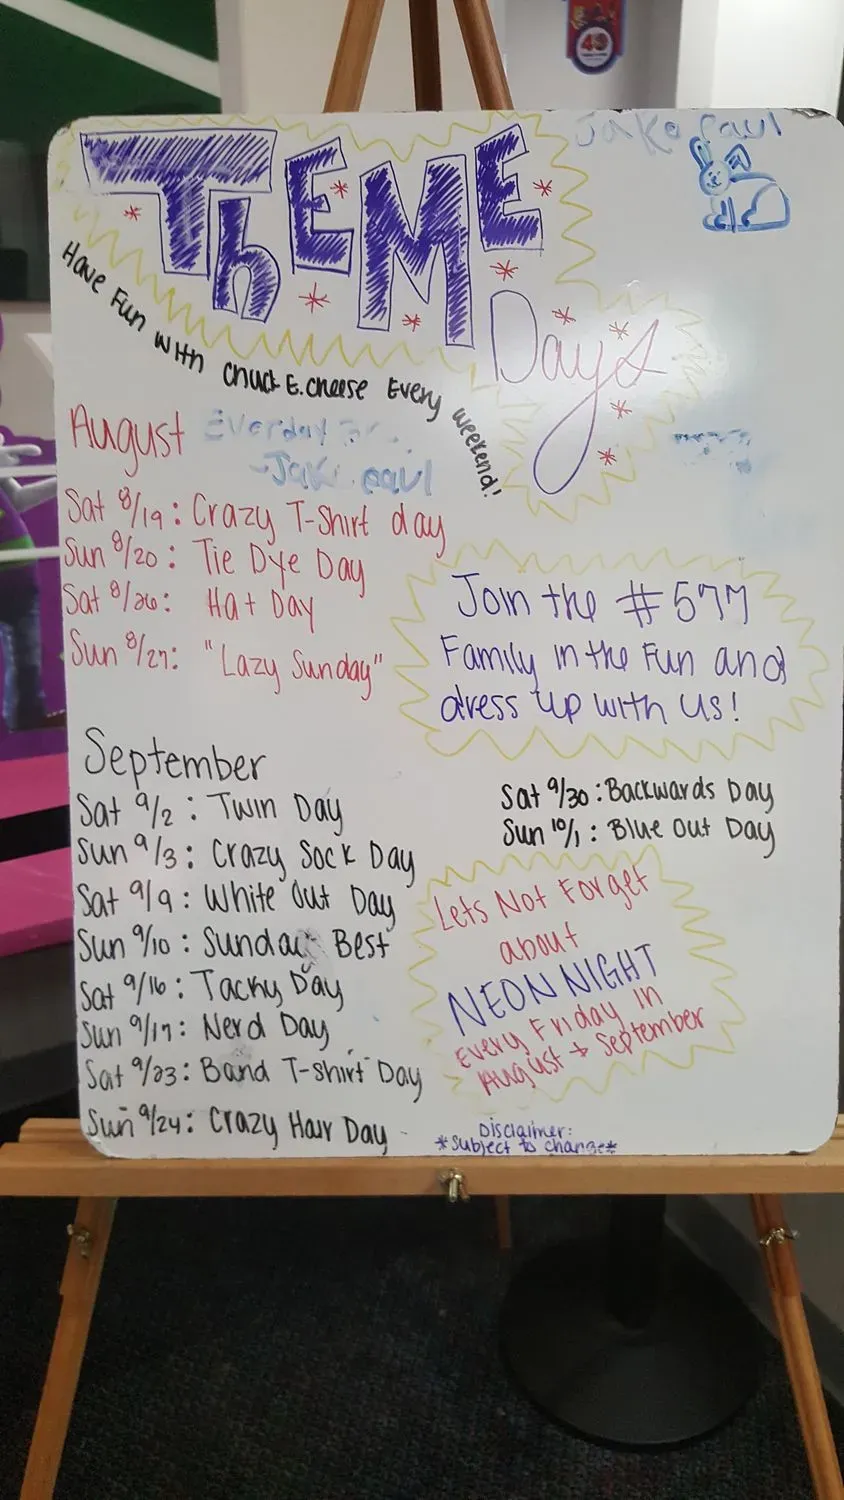 Jake Paul
ThEME
Days
Have Fun with Chuck E. Cheese Every weekend!
August
Everday
-Jake paul
Sat 8/19: Crazy T-Shirt day
Sun 8/20: Tie Dye Day
Sat 8/26: Hat Day
Sun 8/27: "Lazy Sunday"
Join the #577
Family in the Fun and
dress up with us!
September
Sat 9/2: Twin Day
Sun 9/3: Crazy Sock Day
Sat 9/9: White Out Day
Sun 9/10: Sunday Best
Sat 9/16: Tacky Day
Sun 9/17: Nerd Day
Sat 9/23: Band T-shirt Day
Sun 9/24: Crazy Hair Day
Sat 9/30: Backwards Day
Sun 10/1: Blue Out Day
Lets Not Forget
about
NEON NIGHT
Every Friday in
August + September
Disclaimer:
*Subject to change*